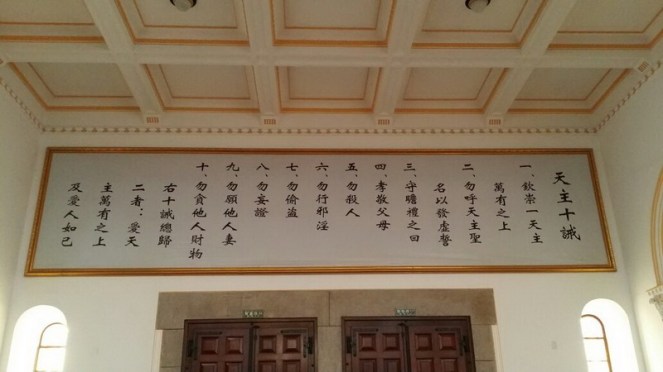 天主十誡
一、欽崇一天主
萬有之上
二、勿呼天主聖
名以發虛誓
三、守瞻禮之日
四、孝敬父母
五、勿殺人
六、勿行邪淫
七、勿偷盜
八、勿妄證
九、勿願他人妻
十、勿貪他人財物
右十誡總歸
二者：愛天
主萬有之上
及愛人如己